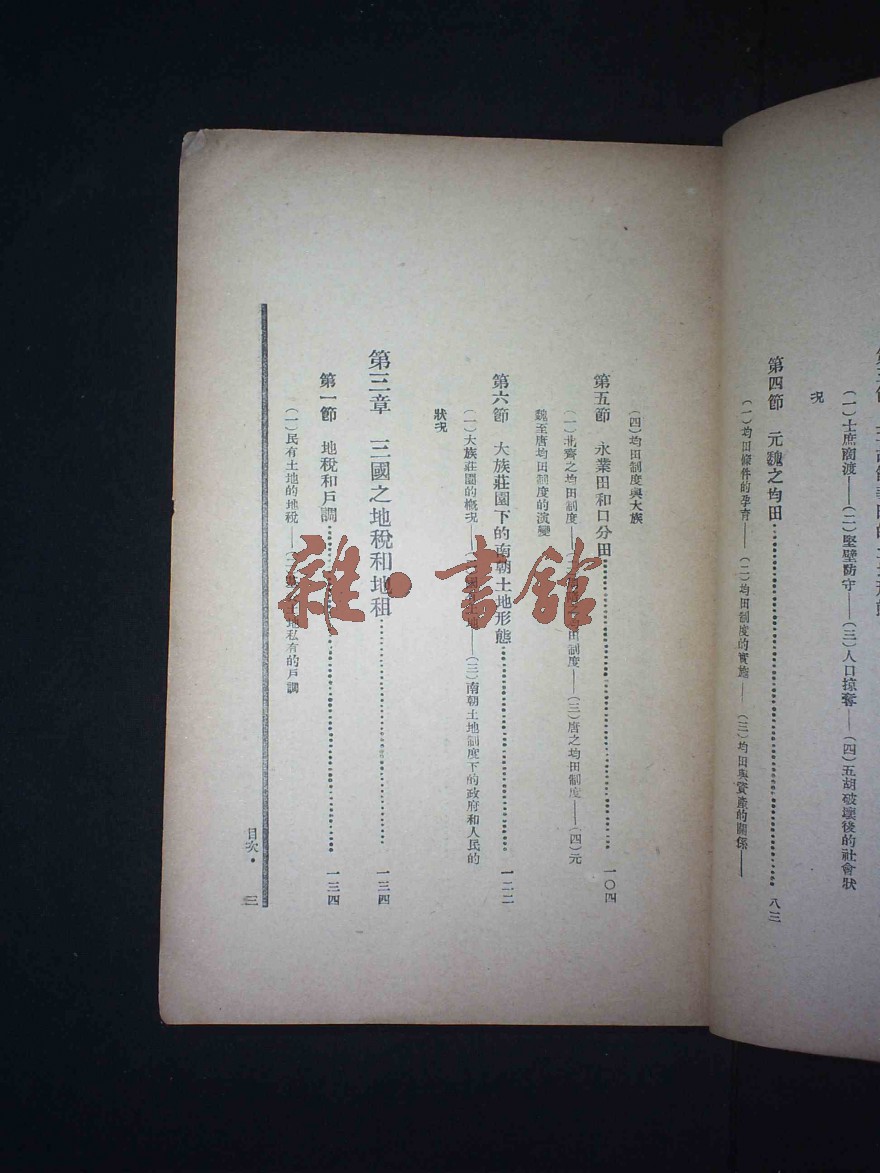 (一)士庶南渡——(二)堅壁防守——(三)人口掠奪——(四)五胡破壞後的社會狀
況
第四節 元魏之均田……八三
(一)均田條件的孕育——(二)均田制度的實施——(三)均田與資產的關係——
(四)均田制度與大族
第五節 永業田和口分田……一〇四
(一)北齊之均田制度——田制度——(三)唐之均田制度——(四)元
魏至唐均田制度的演變
第六節 大族莊園下的南朝土地形態……一二二
(一)大族莊園的概況——(三)南朝土地制度下的政府和人民的
狀況
第三章 三國之地稅和地租……一三四
第一節 地稅和戶調……一三四
(一)民有土地的地稅——地私有的戶調
目次· 三
雜·書館